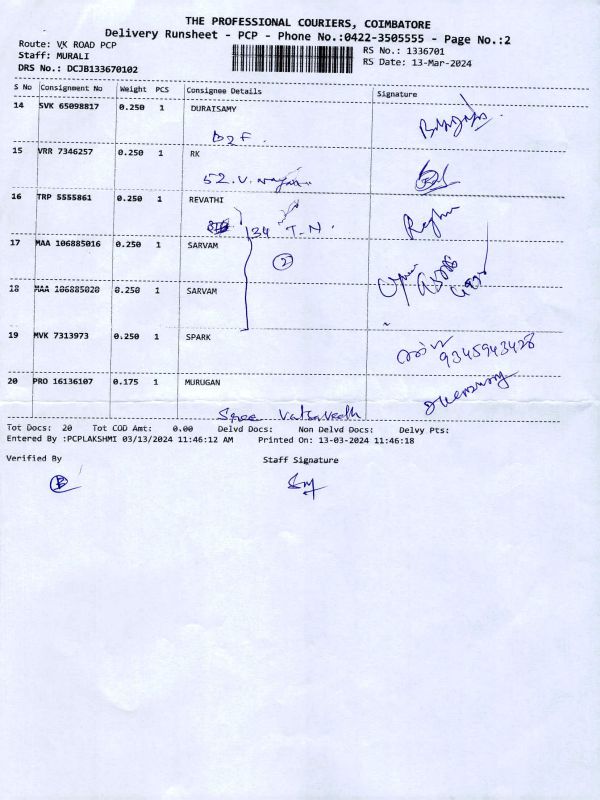 THE PROFESSIONAL COURIERS, COIMBATORE
Delivery Runsheet - PCP - Phone No.:0422-3505555 - Page No.:2
Route: VK ROAD PCP
Staff: MURALI
DRS No.: DCJB133670102
RS No.: 1336701
RS Date: 13-Mar-2024
S No Consignment No Weight PCS Consignee Details Signature
14 SVK 65098817 0.250 1 DURAISAMY
D2F.
15 VRR 7346257 0.250 1 RK
52.V.
16 TRP 5555861 0.250 1 REVATHI
134 T.N.
17 MAA 106885016 0.250 1 SARVAM
2
18 MAA 106885020 0.250 1 SARVAM
19 MVK 7313973 0.250 1 SPARK
9345943428
20 PRO 16136107 0.175 1 MURUGAN
Sree
Tot Docs: 20 Tot COD Amt: 0.00 Delvd Docs: Non Delvd Docs: Delvy Pts:
Entered By :PCPLAKSHMI 03/13/2024 11:46:12 AM Printed On: 13-03-2024 11:46:18
Verified By Staff Signature